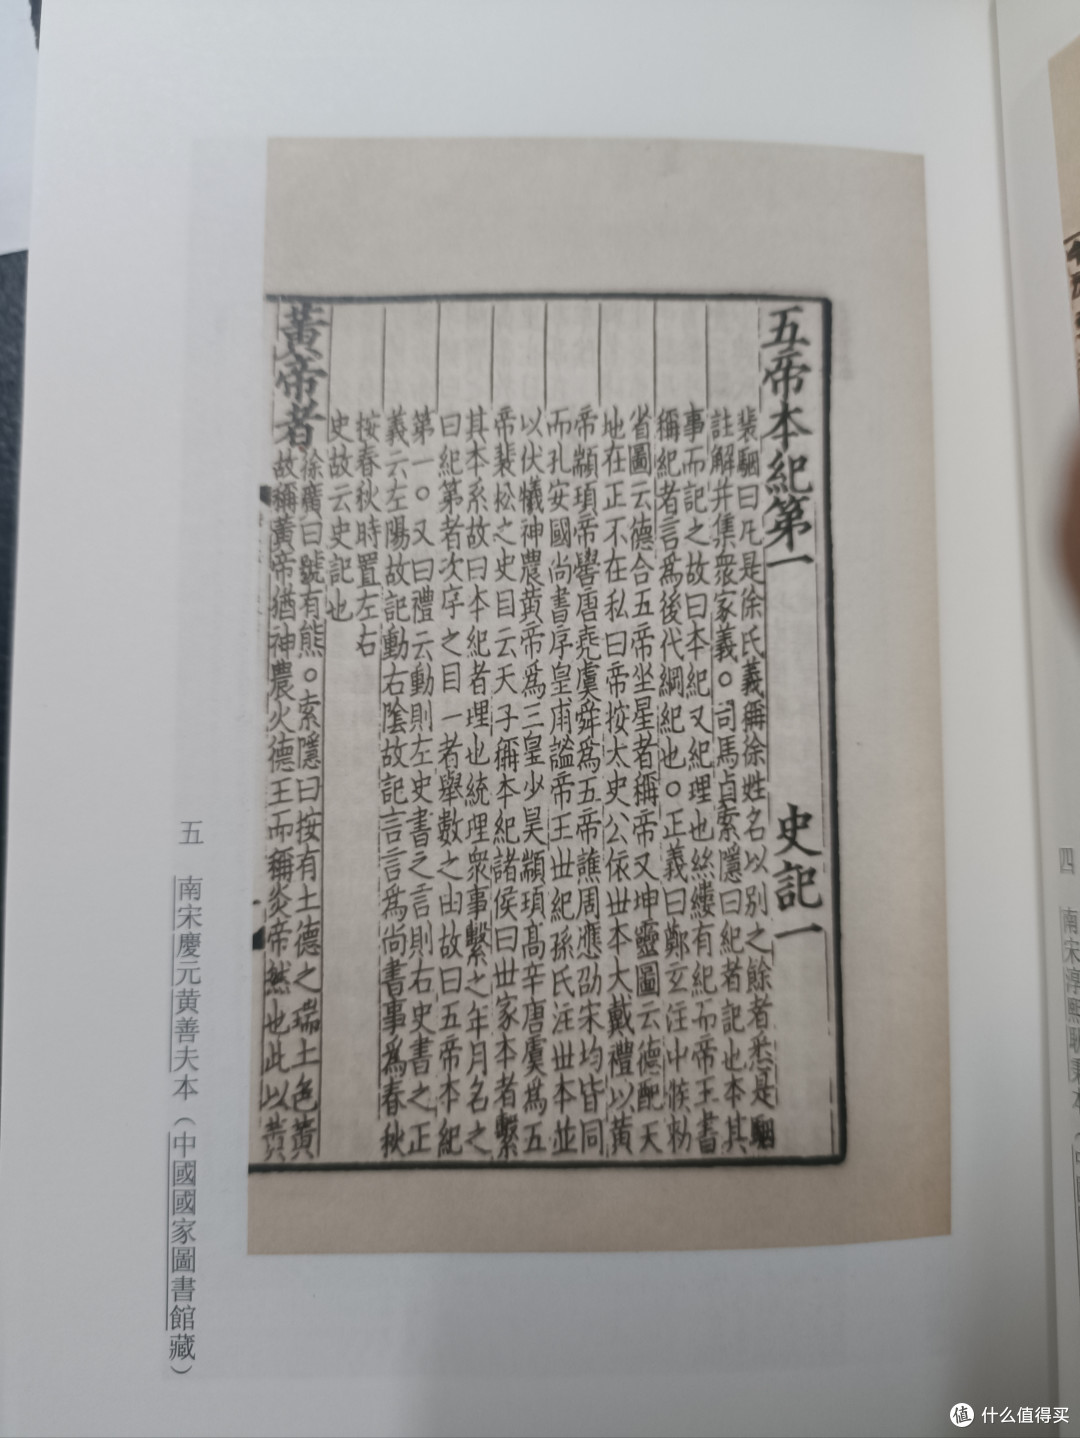 五帝本紀第一　史記一
裴駰曰凡是徐氏義稱徐姓名以别之餘者悉是駰
註解并集衆家義○司馬貞索隱曰紀者記也本其
事而記之故曰本紀又紀理也絲縷有紀而帝王書
稱紀者言爲後代綱紀也○正義曰鄭玄注中候勑
省圖云德合五帝坐星者稱帝又坤靈圖云德配天
地在正不在私曰帝按太史公依世本大戴禮以黄
帝顓頊帝嚳唐堯虞舜爲五帝譙周應劭宋均皆同
而孔安國尚書序皇甫謐帝王世紀孫氏注世本並
以伏犧神農黄帝爲三皇少昊顓頊高辛唐虞爲五
帝裴松之史目云天子稱本紀諸侯曰世家本者繫
其本系故曰本紀者理也統理衆事繫之年月名之
曰紀第者次序之目一者舉數之由故曰五帝本紀
第一○又曰禮云動則左史書之言則右史書之正
義云左陽故記動右陰故記言言爲尚書事爲春秋
按春秋時置左右
史故云史記也
黄帝者
徐廣曰號有熊○索隱曰按有土德之瑞土色黄
故稱黄帝猶神農火德王而稱炎帝然也此以黄
五　南宋慶元黄善夫本（中國國家圖書館藏）
四　南宋淳熙耿秉本
值 什么值得买